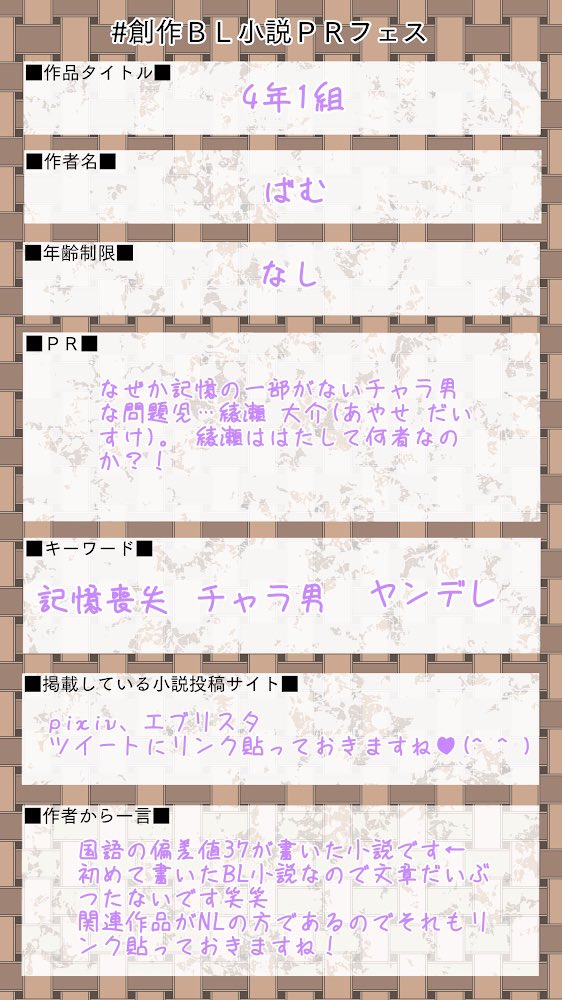 #創作ＢＬ小説ＰＲフェス
■作品タイトル■
4年1組
■作者名■
ばむ
■年齢制限■
なし
■ＰＲ■
なぜか記憶の一部がないチャラ男
な問題児…綾瀬 大介(あやせ だい
すけ)。 綾瀬ははたして何者なの
か？！
■キーワード■
記憶喪失 チャラ男 ヤンデレ
■掲載している小説投稿サイト■
pixiv、エブリスタ
ツイートにリンク貼っておきますね♥(^ ^ )
■作者から一言■
国語の偏差値37が書いた小説です←
初めて書いたBL小説なので文章だいぶ
つたないです笑笑
関連作品がNLの方であるのでそれもリ
ンク貼っておきますね！